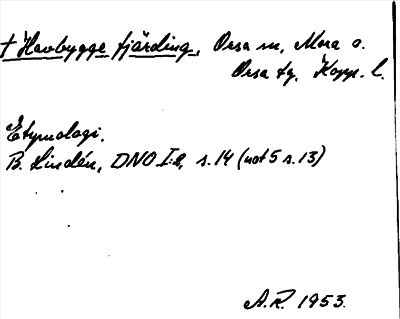 † Havbygge fjärding, Orsa sn, Mora o.
Orsa tg, Kopp. l.
Etymologi.
B. Lindén, DNO I:2, s. 14 (not 5 s. 13)
A.R. 1953.